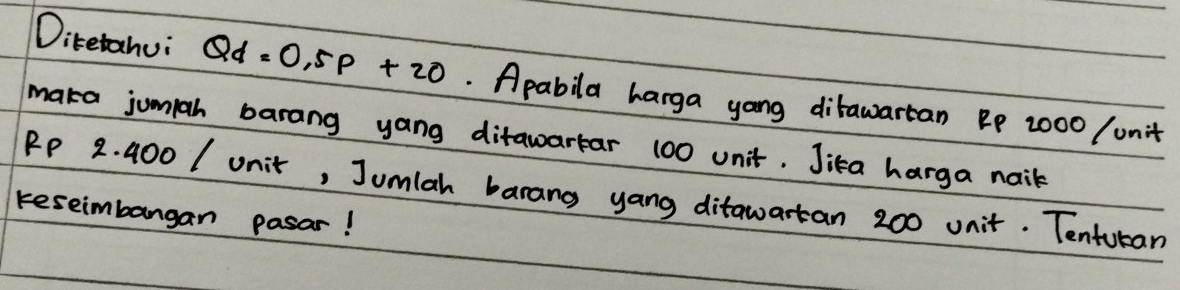 Diketahui Qd = 0,5P + 20. Apabila harga yang ditawarkan Rp 2000/unit
maka jumlah barang yang ditawarkar 100 unit. Jika harga naik
Rp 2.400 / unit, Jumlah barang yang ditawarkan 200 unit. Tentukan
keseimbangan pasar!